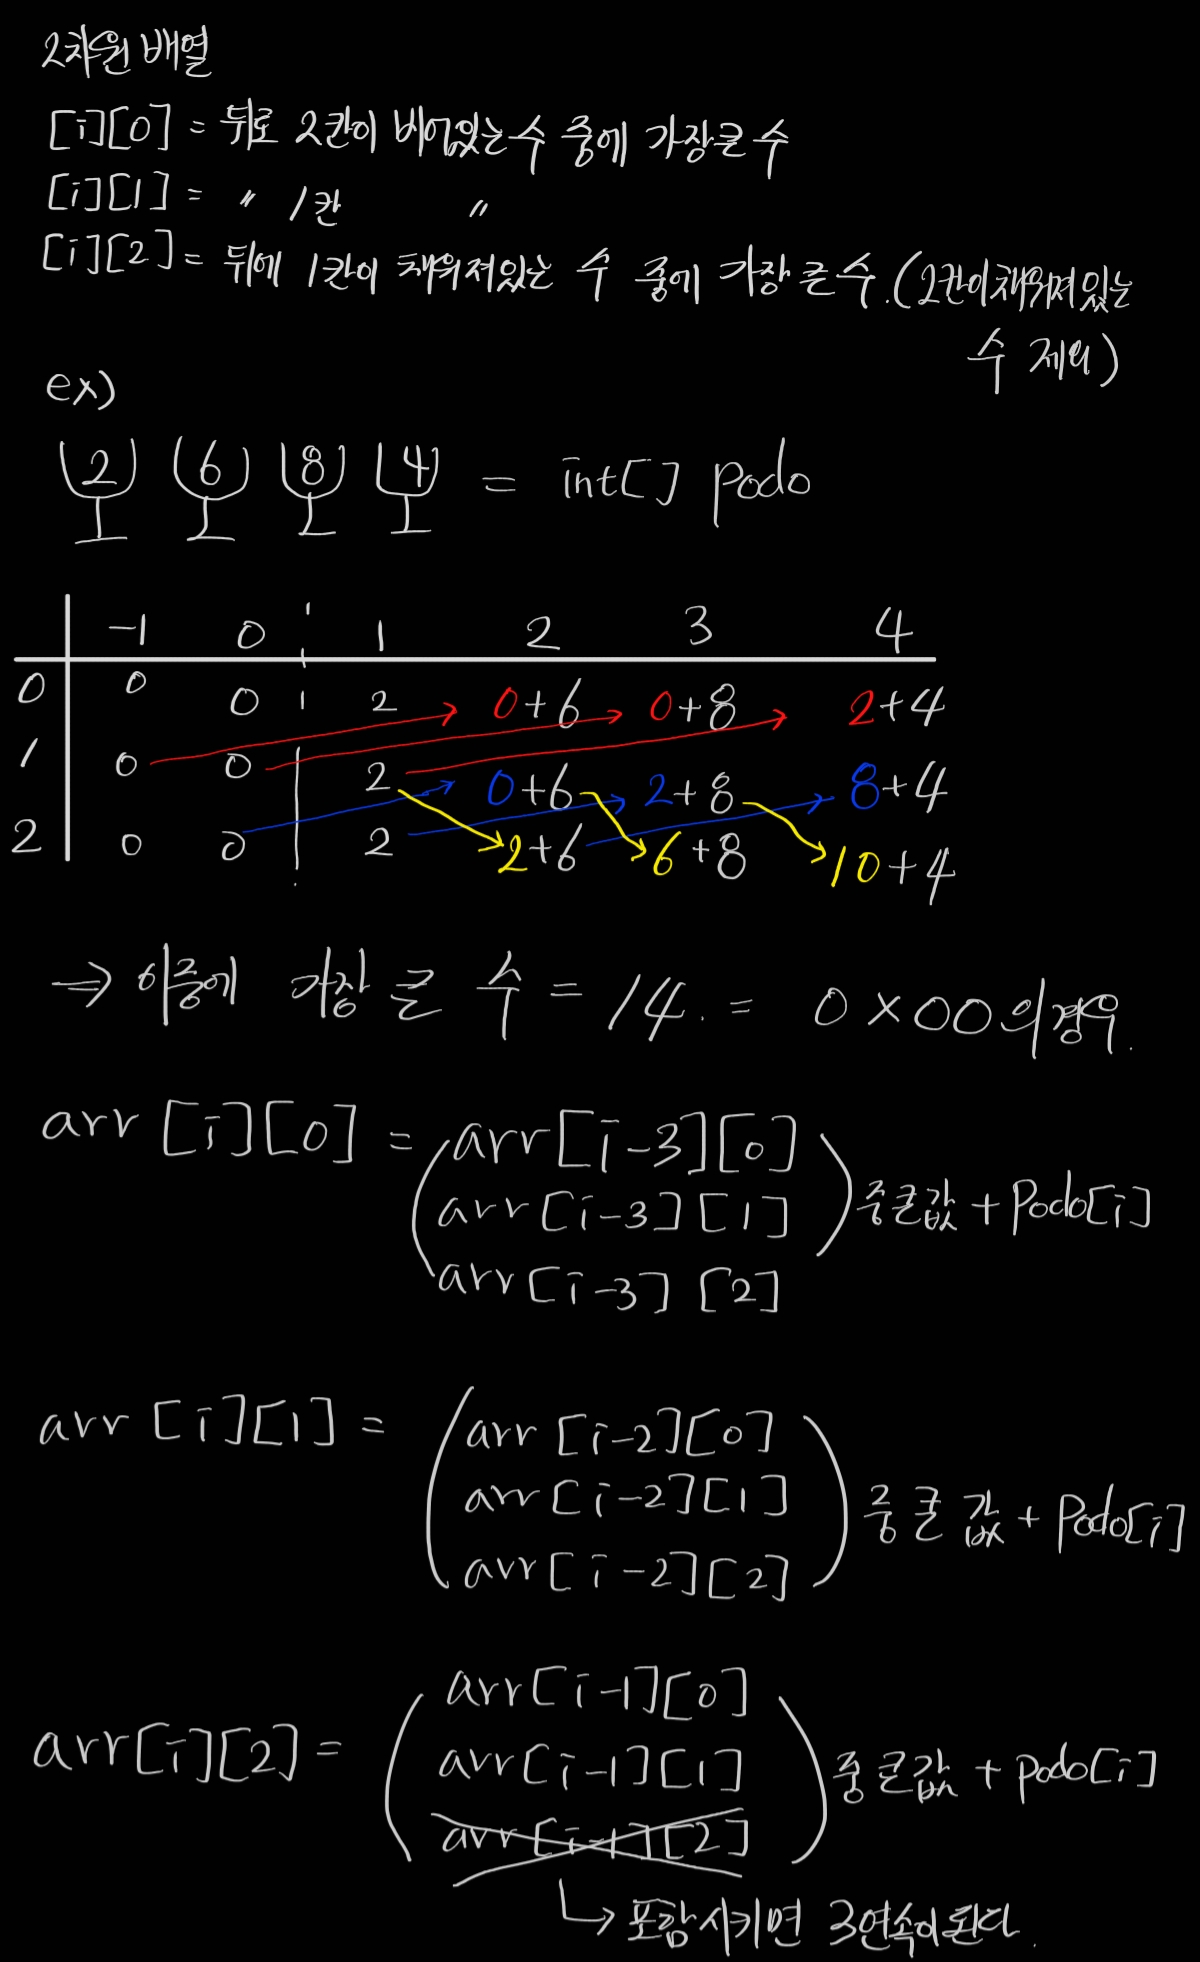 2차원 배열
[i][0] = 뒤로 2칸이 비어있는 수 중에 가장 큰 수
[i][1] = 〃 1칸 〃
[i][2] = 뒤에 1칸이 채워져있는 수 중에 가장 큰 수. (2칸이 채워져 있는
수 제외)
ex)
2 6 8 4 = int[] podo
-1 0 1 2 3 4
0 0 0 2 0+6 0+8 2+4
1 0 0 2 0+6 2+8 8+4
2 0 0 2 2+6 6+8 10+4
⇒ 이중에 가장 큰 수 = 14. = O X O O 의 경우.
arr [i][0] = arr[i-3][0]
arr[i-3][1] 중 큰 값 + Podo[i]
arr[i-3][2]
arr [i][1] = arr[i-2][0]
arr[i-2][1] 중 큰 값 + Podo[i]
arr[i-2][2]
arr[i-1][0]
arr[i][2] = arr[i-1][1] 중 큰 값 + podo[i]
arr[i-1][2]
↳ 포함시키면 3연속이 된다.